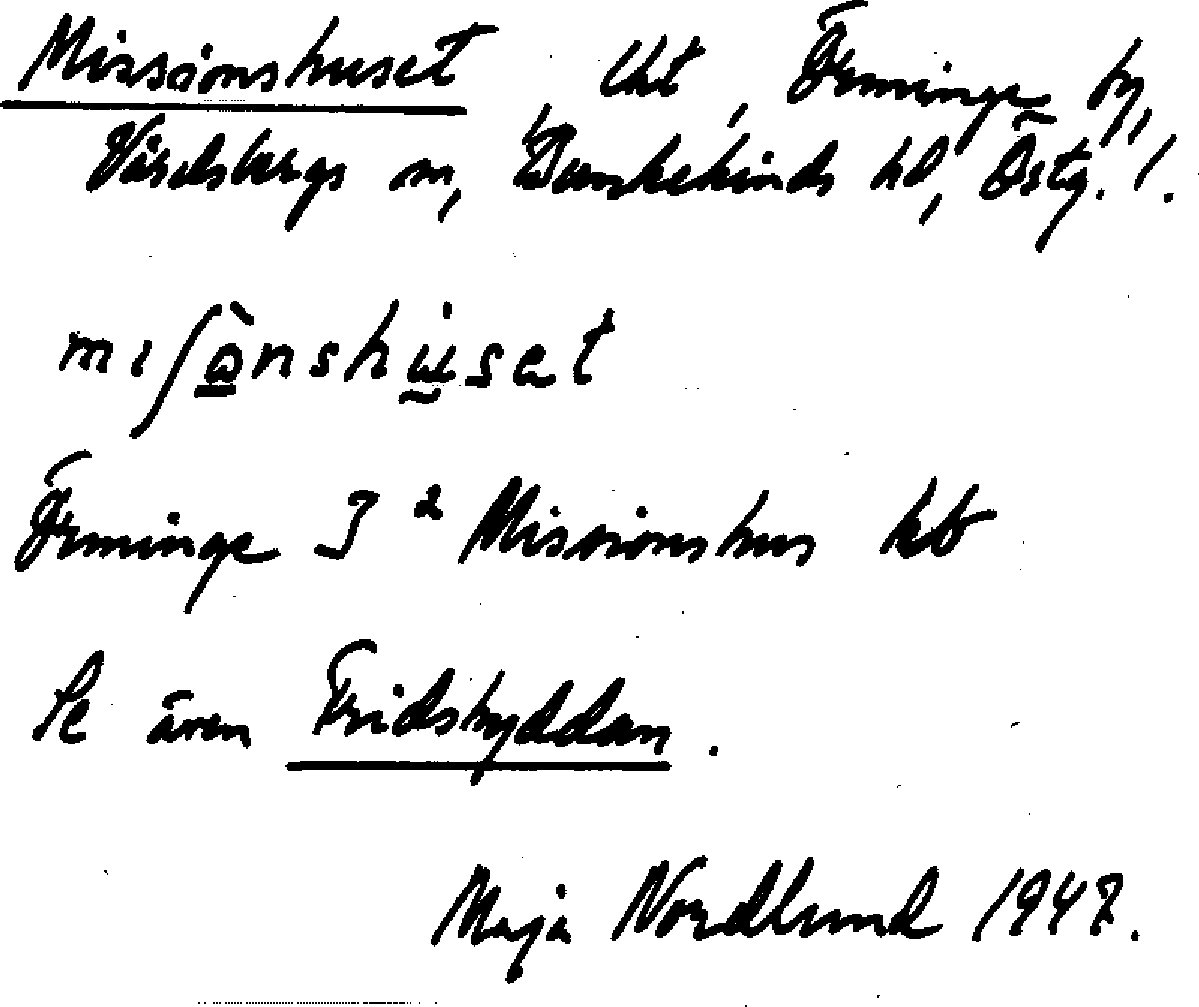 Missionshuset, lht, Örminge by,
Vårdsbergs sn, Bankekinds hd, Östg. l.
mıʃὼ̲nshu̇set
Örminge 3² Missionshus kb
Se även Fridshyddan.
Maja Nordlund 1947.